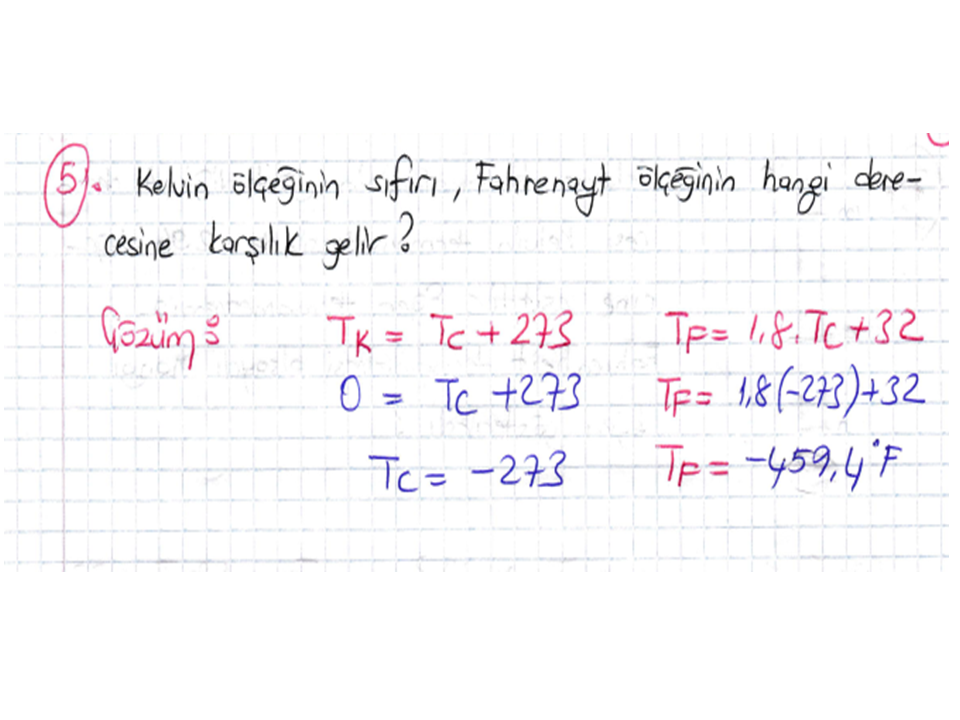 5). Kelvin ölçeğinin sıfırı, Fahrenayt ölçeğinin hangi dere-
cesine karşılık gelir?
Çözüm: TK = TC + 273 TF = 1,8.TC+32
0 = TC +273 TF = 1,8(-273)+32
TC = -273 TF = -459,4°F